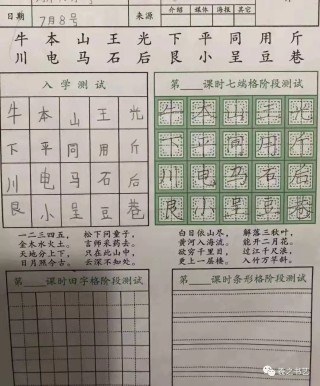 介绍 媒体 海报 其它
日期 7月8号 来源
牛 本 山 王 光 下 平 同 用 斤
川 电 马 石 后 艮 小 呈 豆 巷
入学测试 第 课时七端格阶段测试
牛 本 山 王 光 牛 本 山 王 光
下 平 同 用 斤 下 平 同 用 斤
川 电 马 石 后 川 电 马 石 后
艮 小 呈 豆 巷 艮 小 呈 豆 巷
一二三四五， 松下问童子， 白日依山尽， 解落三秋叶，
金木水火土。 言师采药去。 黄河入海流。 能开二月花。
天地分上下， 只在此山中， 欲穷千里目， 过江千尺浪，
日月照今古。 云深不知处。 更上一层楼。 入竹万竿斜。
第 课时田字格阶段测试 第 课时条形格阶段测试
苍之书艺